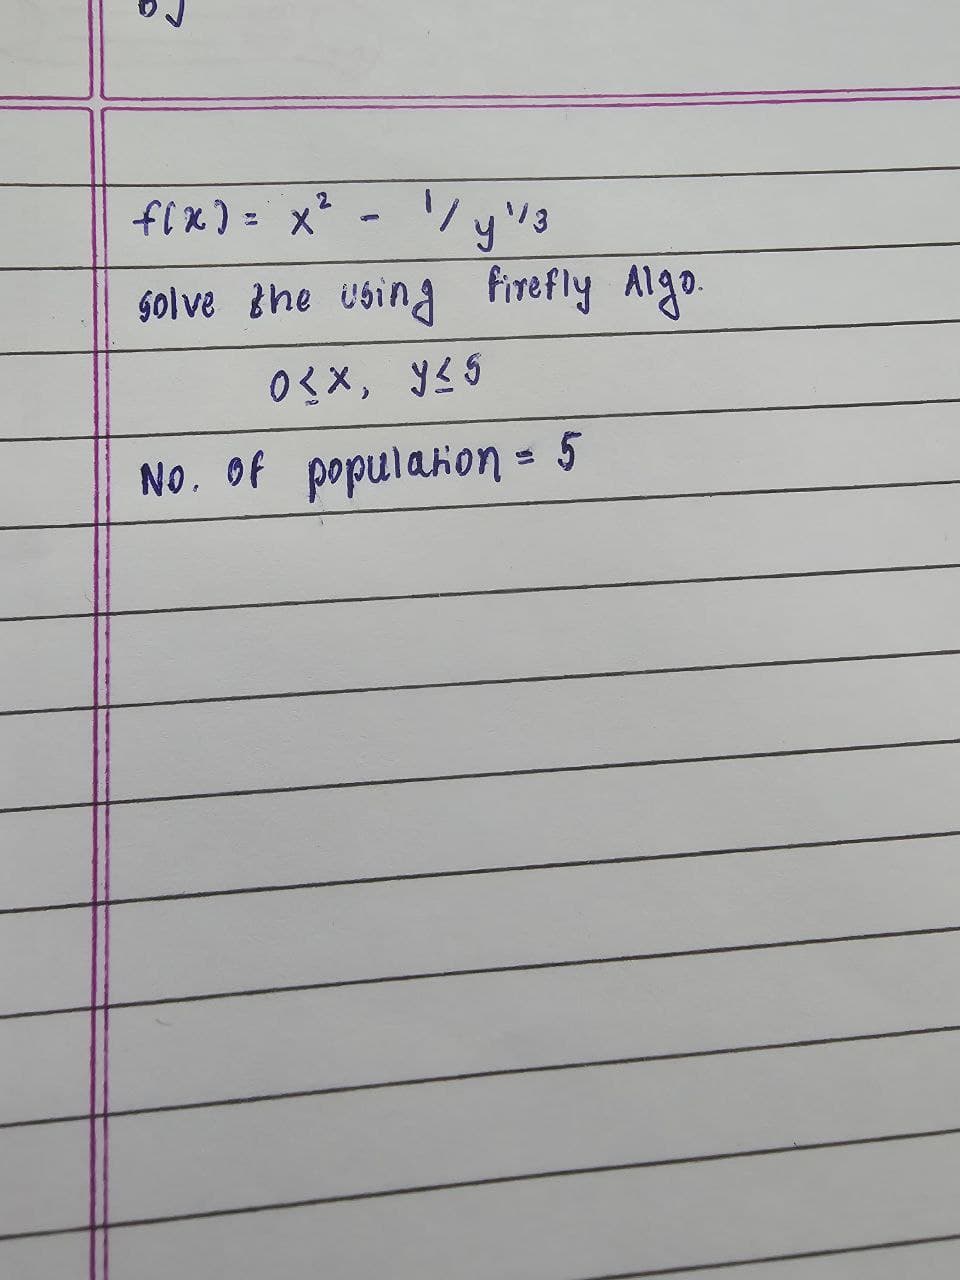 f(x) = x² - 1/y^1/3
solve the using firefly Algo.
0 ≤ x, y ≤ 5
No. of population = 5